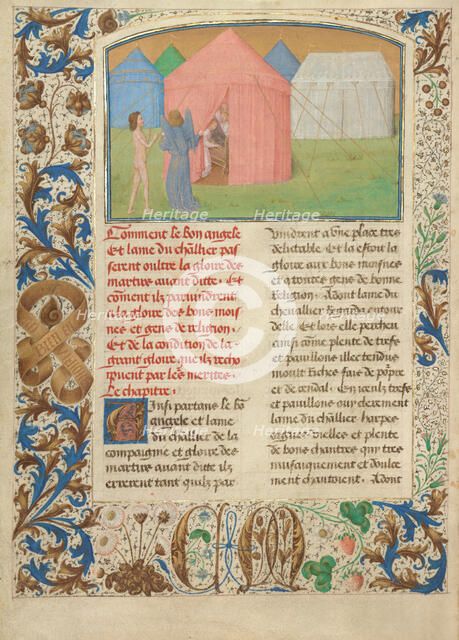 Comment le bon angele
Et lame du chllier pas
serent oultre la gloire des
martirs auant ditte Et
cõment ilz paruindrent
a la gloire des bons mois
nes et gens de religion
Et de la condition de la
grant gloire que ilz recho
iuent par les merites
Le chapitre
Ainsi partans le bõ
angele et lame
du chllier de la
compaignie et gloire des
martirs auant ditte ilz
errerent tant quilz par
uindrent a vne place tres
delitable Et la estoit la
gloire aux bons moisnes
et a toutes gens de bonne
religion Adont lame du
cheuallier regarda entour
delle Et lors elle percheu
ainsi cõme plente de trefs
et pauillons illec tendus
moult riches fais de pópre
et de cendal Et en iceulz trefs
et pauillons ouy clerement
lame du chllier harpes
orgues vielles et plente
de bons chantres qui tres
musicquement et doulce
ment chantoient Adont
heritage
Heritage
Heritage
Heritage